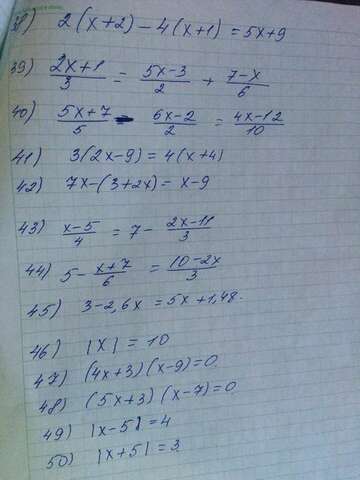 38) 2(x+2) - 4(x+1) = 5x+9
39) (2x+1)/3 = (5x-3)/2 + (7-x)/6
40) (5x+7)/5 - (6x-2)/2 = (4x-12)/10
41) 3(2x-9) = 4(x+4)
42) 7x-(3+2x) = x-9
43) (x-5)/4 = 7 - (2x-11)/3
44) 5 - (x+7)/6 = (10-2x)/3
45) 3-2,6x = 5x+1,48.
46) |x| = 10
47) (4x+3)(x-9)=0.
48) (5x+3)(x-7)=0
49) |x-5|=4
50) |x+5|=3